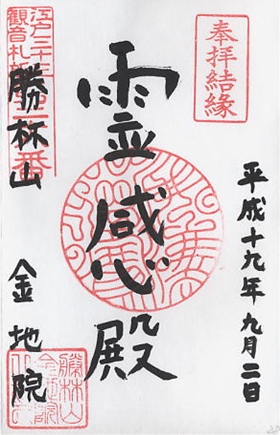 奉拝結縁
平成十九年九月二日
霊感殿
江戸三十三
観音札所
番
勝林山
金地院
勝林山
金地院